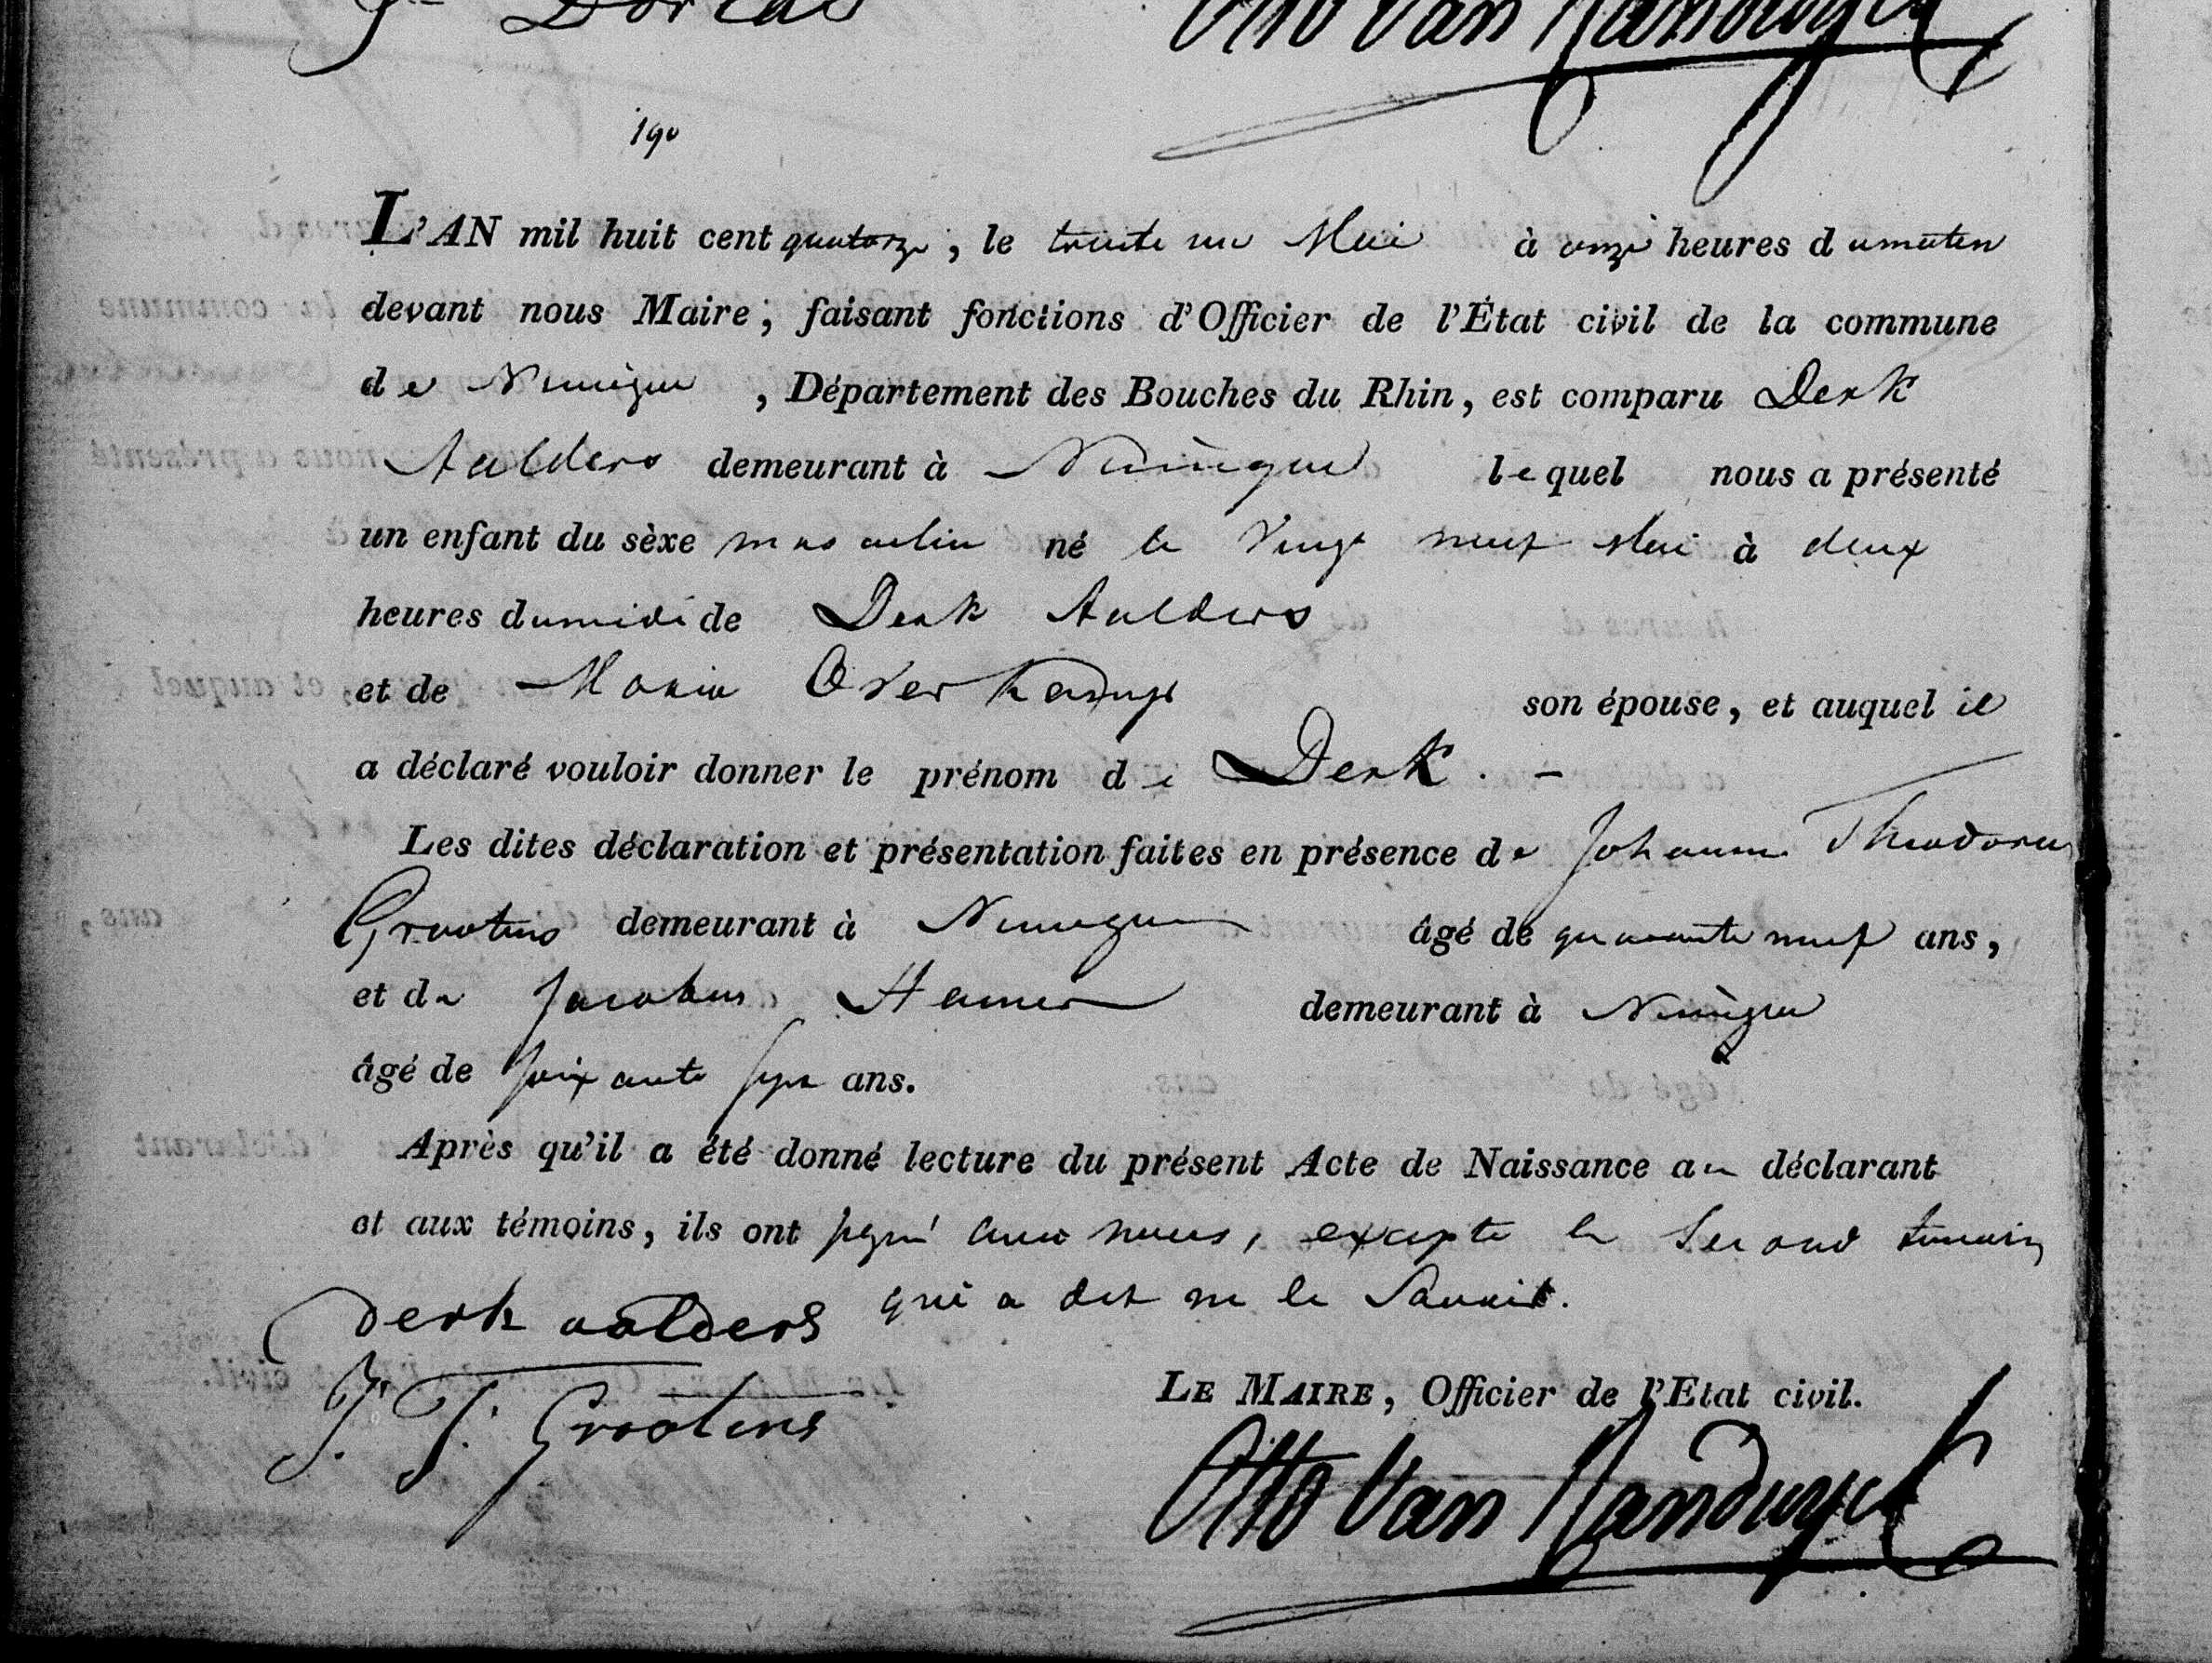 Otto van Randwyck
190
L'AN mil huit cent quatorze, le trente un Mai à onze heures du matin
devant nous Maire; faisant fonctions d'Officier de l'État civil de la commune
de Nimègue, Département des Bouches du Rhin, est comparu Derk
Aalders demeurant à Nimègue lequel nous a présenté
un enfant du sèxe masculin né le Vingt neuf Mai à deux
heures du midi de Derk Aalders
et de Maria Overkamp son épouse, et auquel il
a déclaré vouloir donner le prénom de Derk. -
Les dites déclaration et présentation faites en présence de Johannes Theodorus
Grootens demeurant à Nimegue âgé de quarante neuf ans,
et de Jacobus Hamer demeurant à Nimègue
âgé de soixante sept ans.
Après qu'il a été donné lecture du présent Acte de Naissance au déclarant
et aux témoins, ils ont signé avec nous, excepte le Second temoin
qui a dit ne le Savoir.
Derk aalders
J. T. Grootens
LE MAIRE, Officier de l'Etat civil.
Otto van Randwyck